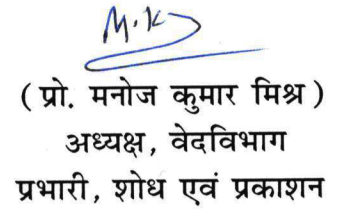 M.K
( प्रो. मनोज कुमार मिश्र )
अध्यक्ष, वेदविभाग
प्रभारी, शोध एवं प्रकाशन